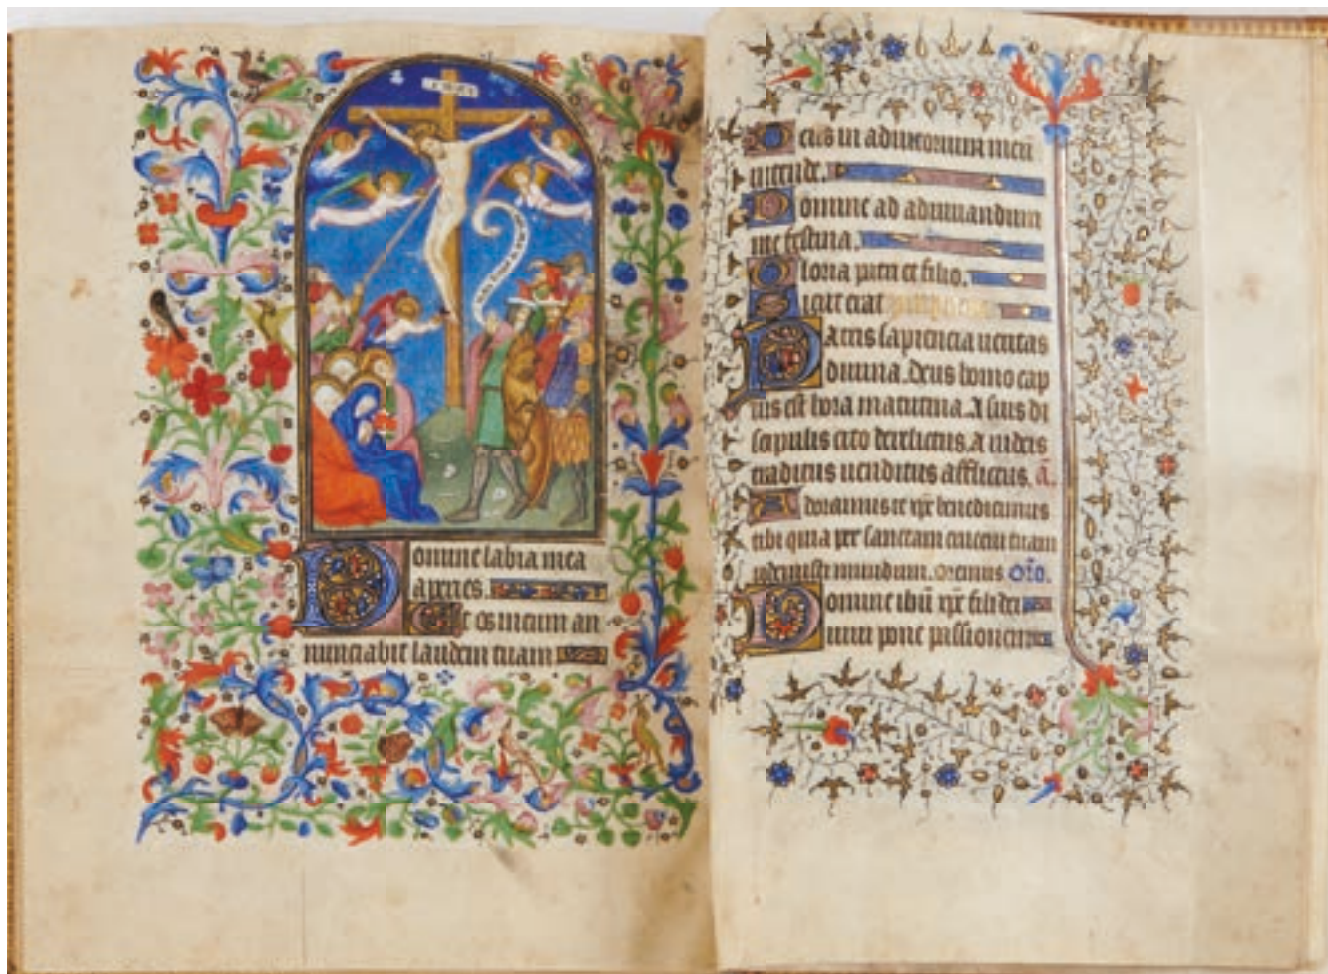 Domine labia mea
aperies.
Et os meum an
nunciabit laudem tuam
Deus in adiutorium meu
intende.
Domine ad adiuuandum
me festina.
Gloria patri et filio.
Sicut erat
Patris sapiencia ueritas
diuina. Deus homo cap
tus est hora matutina. A suis di
scipulis cito derelictus. A iudeis
traditus uenditus afflictus. a.
Adoramus te xpe benedicimus
tibi quia per sanctam crucem tuam
redemisti mundum. oremus oro.
Domine ihu xpe fili dei
uiui pone passionem